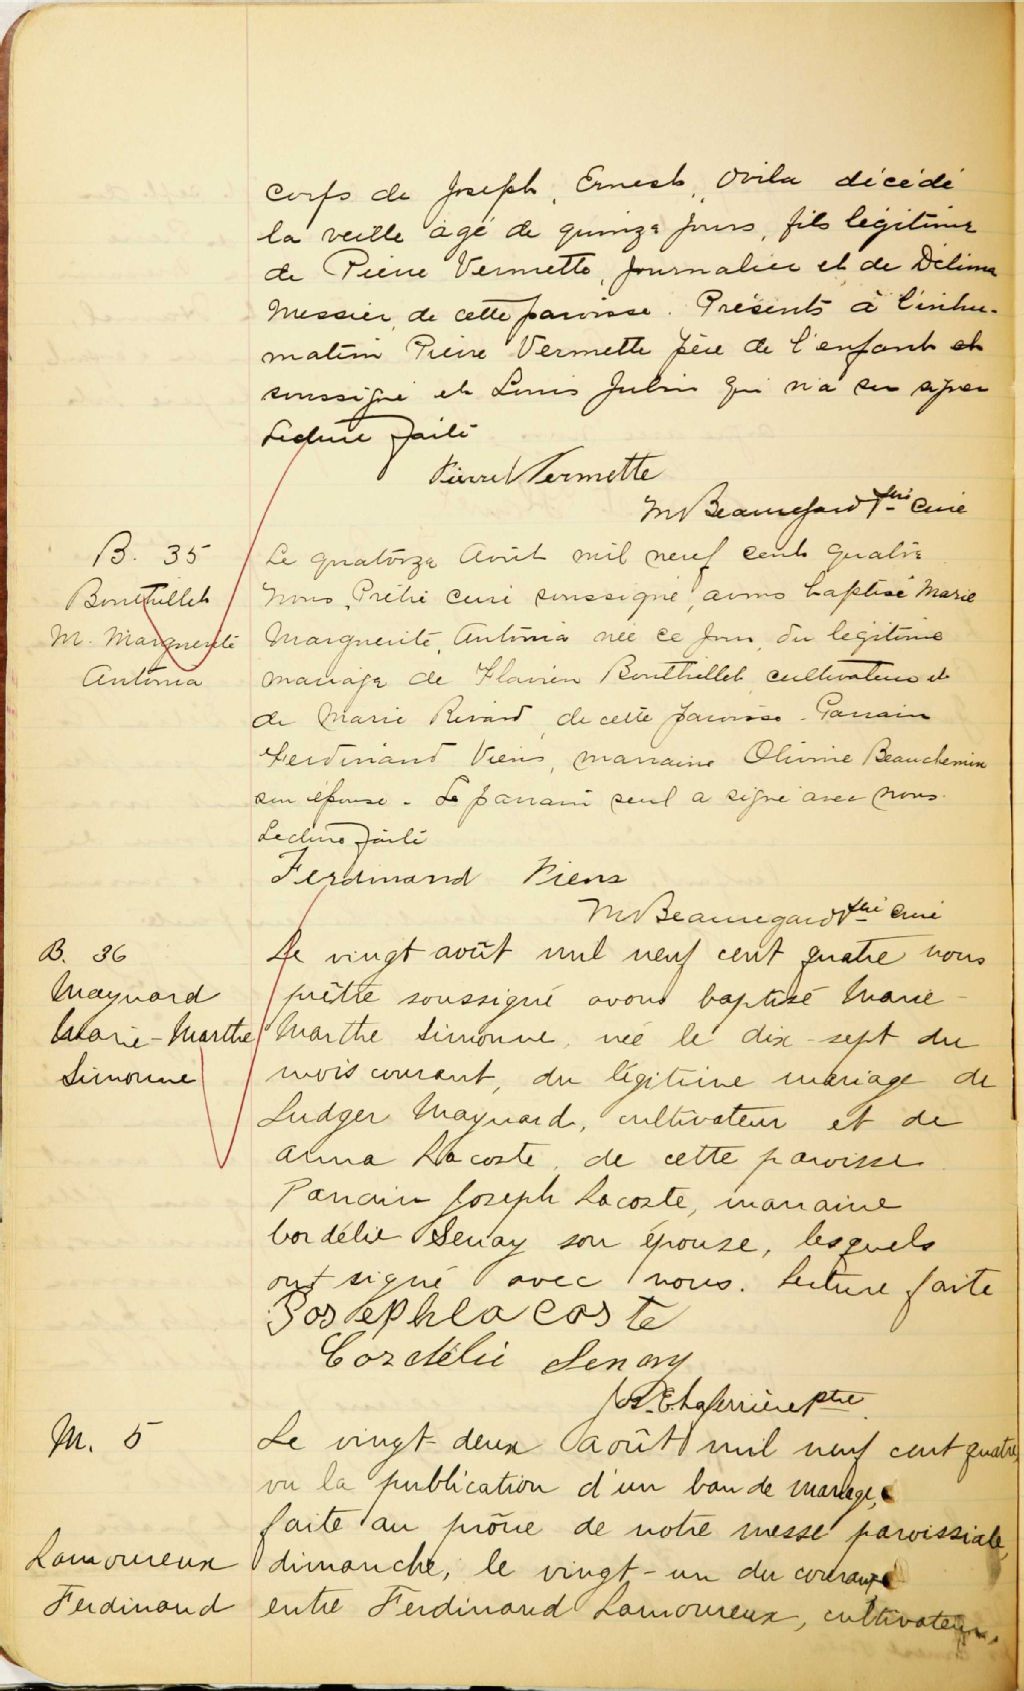 corps de Joseph, Ernest, Ovila décédé
la veille agé de quinze jours, fils légitime
de Pierre Vermette, journalier et de Délima
Messier, de cette paroisse. Présents à l'inhu-
mation Pierre Vermette père de l'enfant et
soussigné et Louis Julin qui n'a su signer
Lecture faite
Pierre Vermette
M Beauregard Ptre curé
B. 35
Bouthillet
M. Marguerite
Antonia
Le quatorze Août mil neuf cent quatre
Nous, Prêtre curé soussigné, avons baptisé Marie
Marguerite, Antonia née ce jour, du legitime
mariage de Flavien Bouthillet, cultivateur et
de Marie Rivard, de cette paroisse. Parrain
Ferdinand Viens, marraine Olivine Beauchemin
son épouse. Le parrain seul a signé avec nous.
Lecture faite
Ferdinand Viens
M Beauregard Ptre curé
B. 36
Maynard
Marie-Marthe
Simonne
Le vingt août mil neuf cent quatre nous
prêtre soussigné avons baptisé Marie-
Marthe Simonne, née le dix-sept du
mois courant, du légitime mariage de
Ludger Maynard, cultivateur et de
Anna Lacoste, de cette paroisse
Parrain Joseph Lacoste, marraine
Cordélie Senay son épouse, lesquels
ont signé avec nous. Lecture faite
Joseph lacoste
Cordélie Senay
Jos. E. Laferrière ptre
M. 5
Lamoureux
Ferdinand
Le vingt-deux août mil neuf cent quatre,
vu la publication d'un ban de mariage,
faite au prône de notre messe paroissiale,
dimanche, le vingt-un du courant
entre Ferdinand Lamoureux, cultivateur,